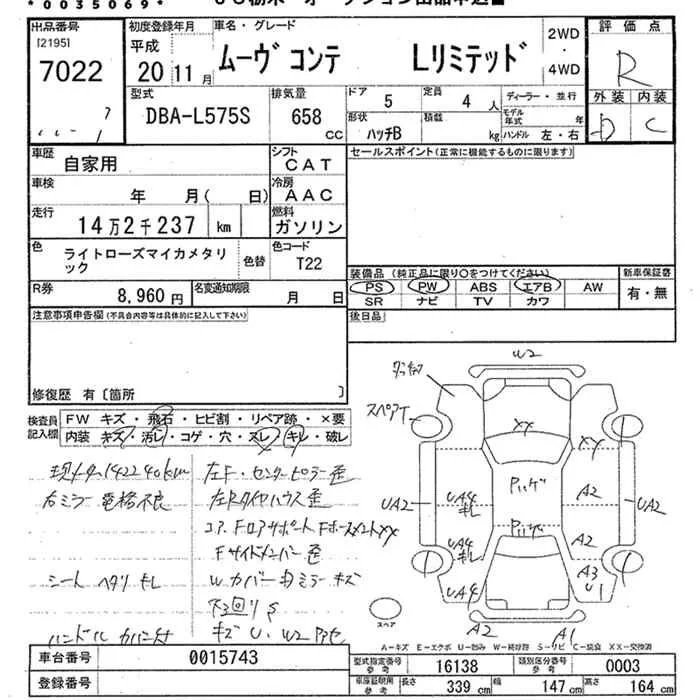 *0035069*
出品番号 初度登録年月 車名・グレード 2WD 評価点
[2195] 平成 ムーヴ コンテ Lリミテッド ・ R
7022 20年11月 4WD
型式 排気量 ドア 定員 ディーラー・並行 外装 内装
DBA-L575S 658 CC 5 4人 モデル年式 年 D C
形状 積載
ハッチB kg ハンドル 左・右
車歴 自家用 シフト CAT セールスポイント(正常に機能するものに限ります)
車検 年 月( 日) 冷房 AAC
走行 14万2千237 km 燃料 ガソリン
色 ライトローズマイカメタリック 色替 色コード T22
装備品(純正品に限り○をつけてください) 新車保証書
PS PW ABS エアB AW 有・無
SR ナビ TV カワ
R券 8,960円 名変通知期限 月 日
注意事項申告欄(不具合内容等は具体的に記入して下さい) 後日品
修復歴 有〔箇所 〕
検査員記入欄 FW キズ・飛石・ヒビ割・リペア跡・×要
内装 キズ・汚レ・コゲ・穴・スレ・キレ・破レ
W2
スペアT
XX
XX
現メーター142240km 左F・センターピラー歪
右ミラー電格不良 左Rタイヤハウス歪
コアFロアサポートFホースメントXX
Fサイドメンバー歪
シート ヘタリ キレ Wカバー 左ミラー キズ
下回りS
ハンドル カバー付 キズ U、W2
UA2 UA4 キレ A2 UA2
UA4 キレ A2
UA4 A3 U1
スペア A2 A1
A=キズ E=エクボ U=凹み W=補修跡 S=サビ C=腐食 XX=交換済
車台番号 0015743 型式指定番号 参考 16138 類別区分番号 参考 0003
登録番号 車庫証明用 参考 長さ 339cm 幅 147cm 高さ 164cm